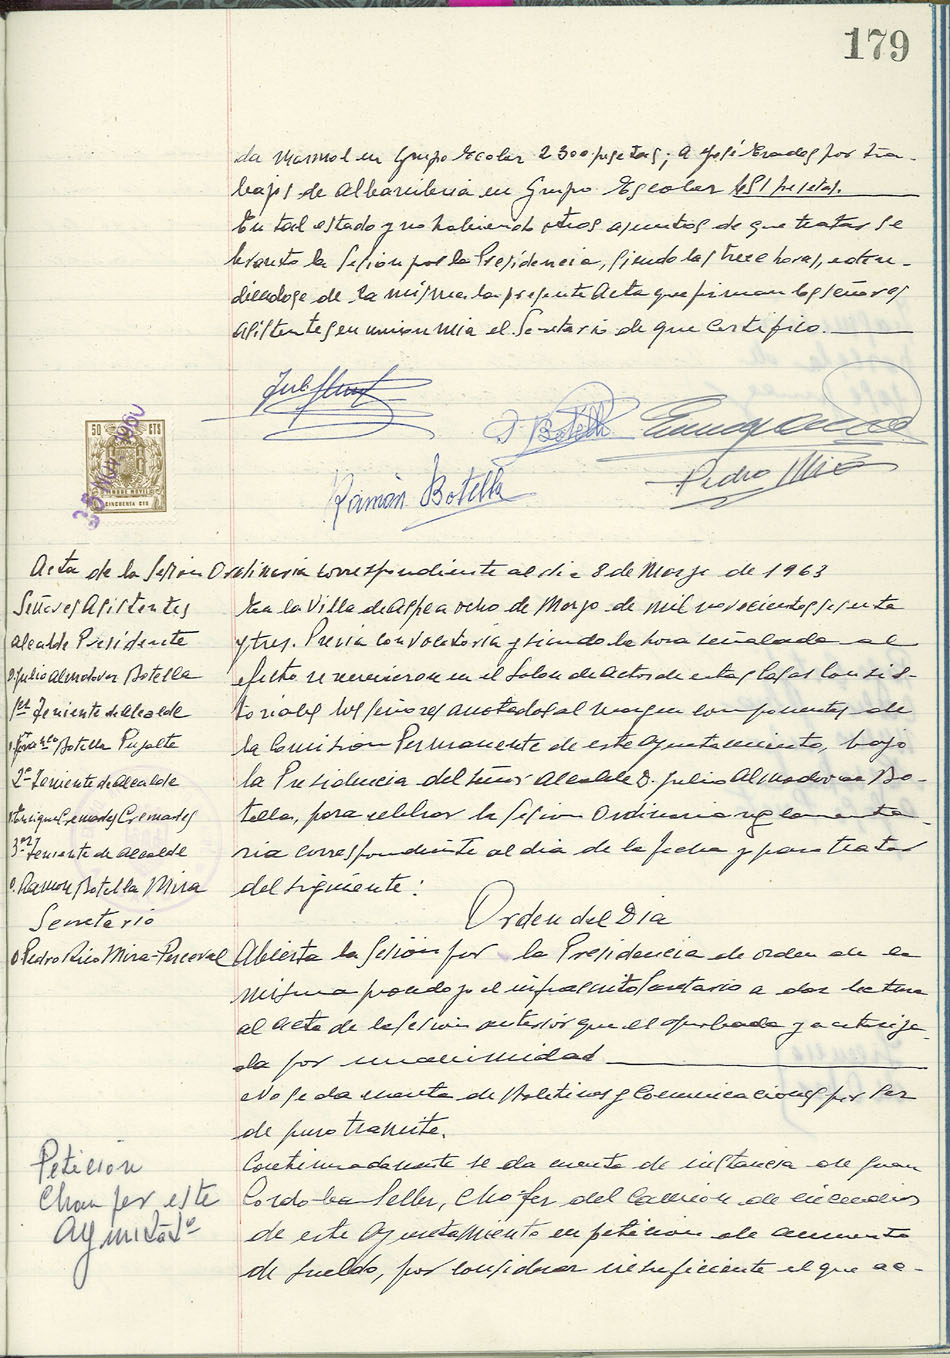 179
da Marmol en Grupo Escolar 2300 pesetas; a José Grades por tra-
bajos de albañileria en Grupo Escolar 651 pesetas.
En tal estado y no habiendo otros asuntos de que tratar se
levanto la Sesión por la Presidencia, siendo las trece horas, exten-
diendose de la misma la presente Acta que firman los señores
asistentes en union mia el Secretario de que Certifico.
50 CTS
TIMBRE MOVIL
CINCUENTA CTS
J Botella
Ramón Botella
Pedro
Acta de la Sesion Ordinaria correspondiente al dia 8 de Marzo de 1963
Señores Asistentes
Alcalde Presidente
D. Julio Almodovar Botella
1er Teniente de Alcalde
Botella Pujalte
2º Teniente de Alcalde
Enrique Cremades Cremades
3er Teniente de Alcalde
D. Ramon Botella Mira
Secretario
D Pedro Rico Mira-Perceval
En la Villa de Aspe a ocho de Marzo de mil novecientos sesenta
y tres. Previa convocatoria y siendo la hora señalada al
efecto se reunieron en el Salon de Actos de estas Casas Consis-
toriales los señores anotados al margen componentes de
la Comisión Permanente de este Ayuntamiento, bajo
la Presidencia del Señor Alcalde D. Julio Almodovar Bo-
tella, para celebrar la Sesion Ordinaria reglamenta-
ria correspondiente al dia de la fecha y para tratar
del siguiente:
Orden del Dia
Abierta la Sesión por la Presidencia de orden de la
misma procedo yo el infrascrito Secretario a dar lectura
al Acta de la Sesion anterior que es aprobada y autoriza-
da por unanimidad
No se da cuenta de Boletines y Comunicaciones por ser
de puro tramite.
Petición
Chaufer este
Ayuntatº
Continuadamente se da cuenta de instancia de Juan
Cordoba Seller, Chofer del Camion de incendios
de este Ayuntamiento en peticion de aumento
de sueldo, por considerar insuficiente el que ac-